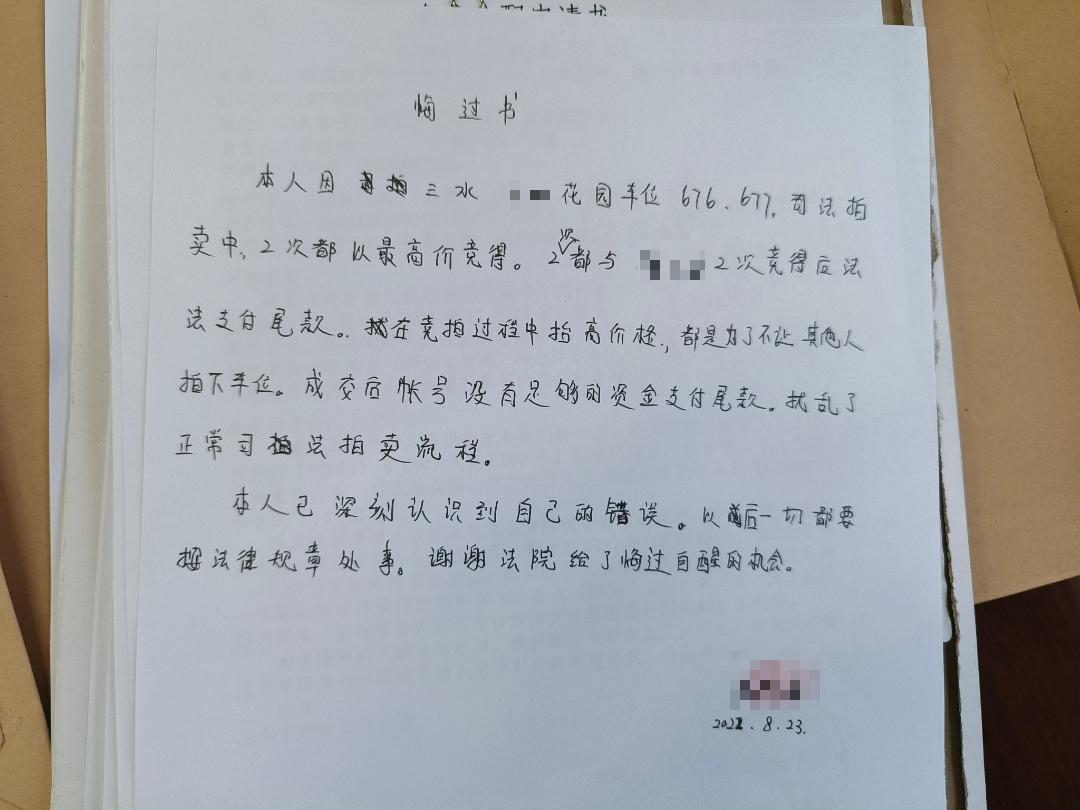 悔过书
本人因 三水 花园车位676.677,司法拍
卖中,2次都以最高价竞得。2次都与 2次竞得后法
法支付尾款。我在竞拍过程中抬高价格,都是为了不让其他人
拍下车位。成交后帐号没有足够的资金支付尾款。扰乱了
正常司法拍卖流程。
本人已深刻认识到自己的错误。以后一切都要
按法律规章处事。谢谢法院给了悔过自醒的机会。
2022.8.23.